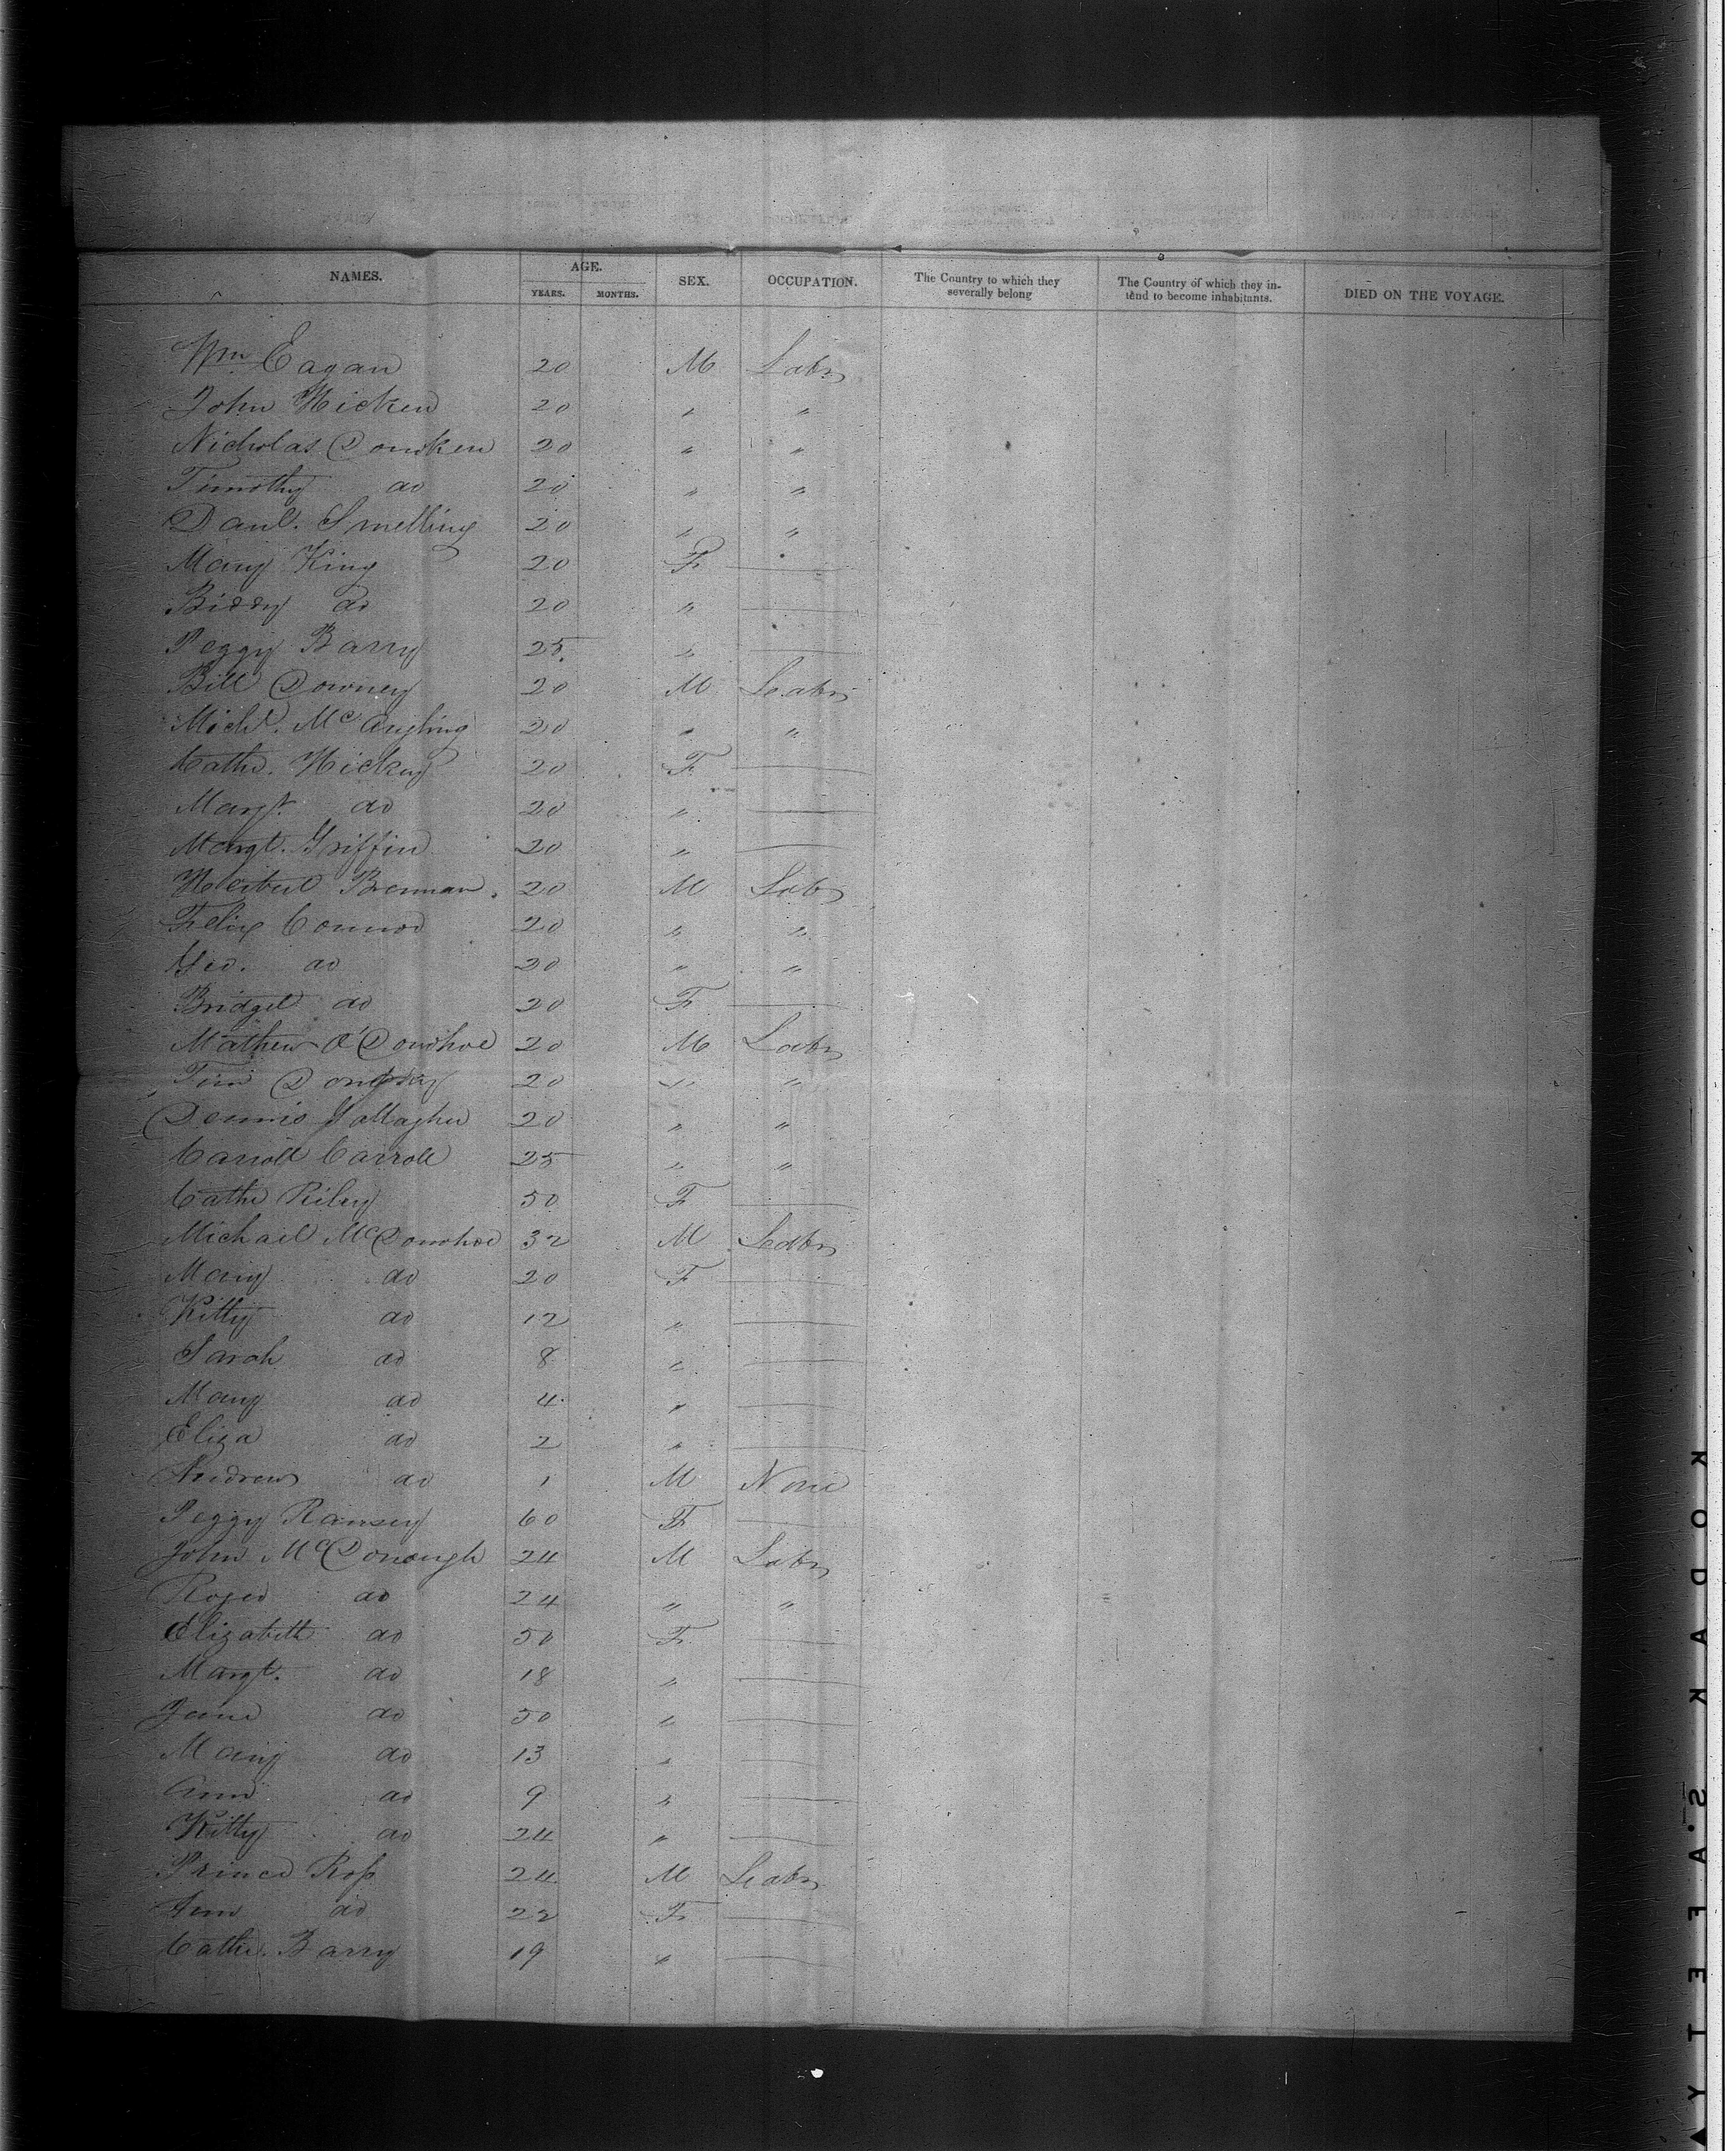 NAMES. AGE. SEX. OCCUPATION. The Country to which they severally belong The Country of which they in-tend to become inhabitants. DIED ON THE VOYAGE.
YEARS. MONTHS.
Wm. Eagan 20 M Labr
John Hicken 20 " "
Nicholas Donoken 20 " "
Timothy do 20 " "
Danl. Smelling 20 " "
Mary King 20 F
Biddy do 20 "
Peggy Barry 25 "
Bill Downey 20 M Labr
Michl. 20 " "
Cathe. Hickey 20 F
Margt. do 20 "
Margt. Griffin 20 "
Brennan 20 M Labr
Felix Connor 20 " "
Geo. do 20 " "
Bridget do 20 F
Mathew O'Donohoe 20 M Labr
Tim 20 " "
Dennis Gallagher 20 " "
Carroll Carroll 25 " "
Cathe Riley 50 F
Michael McDonohoe 32 M Labr
Mary do 20 F
Kitty do 12 "
Sarah do 8 "
Mary do 4 "
Eliza do 2 "
Andrew do 1 M None
Peggy Ramsey 60 F
John McDonough 24 M Labr
Roger do 24 " "
Elizabeth do 50 F
Margt. do 18 "
Jane do 50 "
Mary do 13 "
Ann do 9 "
Kitty do 24 "
Prince Ross 24 M Labr
Ann do 22 F
Cathe. Barry 19 "
KODAK S.AFETY